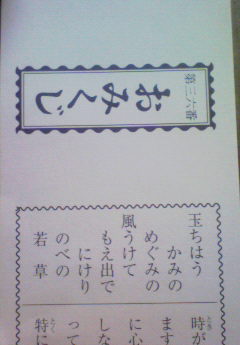 第三六番
おみくじ
玉ちはう
かみの
めぐみの
風うけて
もえ出で
にけり
のべの
若草
時が
ます
に心
しな
って
特に